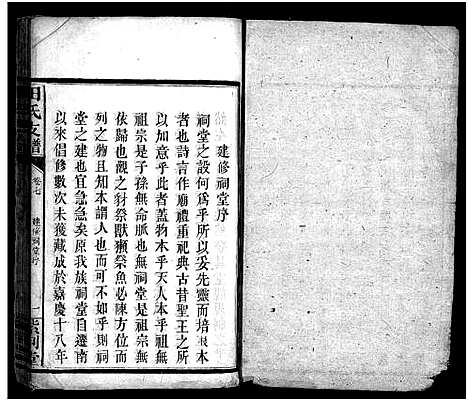 建修祠堂序
祠堂之設何為乎所以妥先靈而培根本
者也詩言作廟禮重祀典古昔聖王之所
以如意乎此者蓋物本乎天人本乎祖無
祖宗是子孫無命脈也無祠堂是祖宗無
依歸也觀之豺祭獸獺祭魚必陳方位而
列之物且知本謂人也而可不如乎則祠
堂之建也宜急急矣原我族祠堂自遷南
以來倡修數次未獲蕆成於嘉慶十八年
田氏支譜
卷七
建修祠堂序
一
紫荆堂